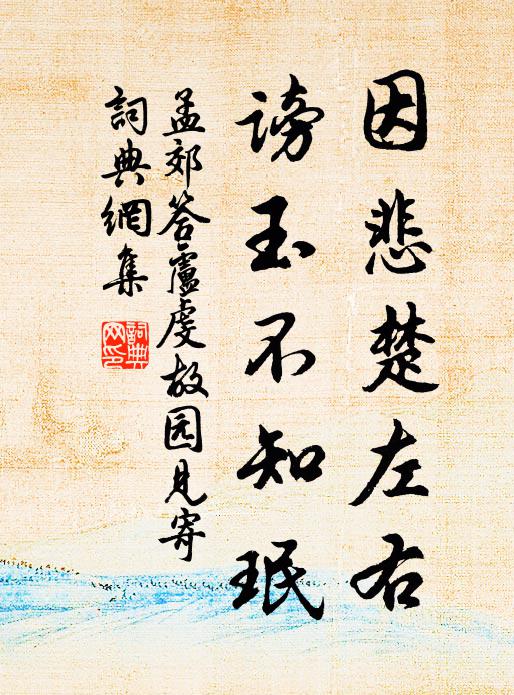 因悲楚左右
謗玉不知珉
孟郊答盧虔故园見寄
詞典網集
詞典
网印